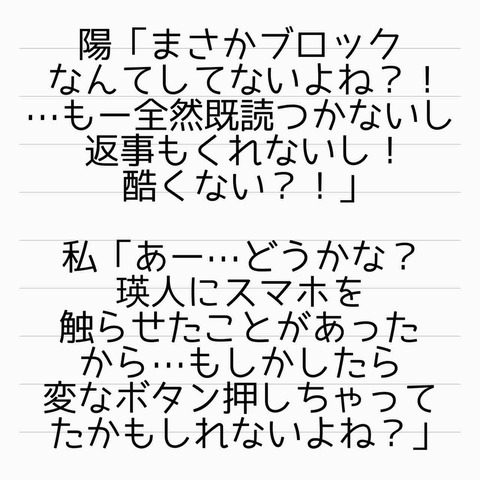 陽「まさかブロック
なんてしてないよね？！
…もー全然既読つかないし
返事もくれないし！
酷くない？！」
私「あー…どうかな？
瑛人にスマホを
触らせたことがあった
から…もしかしたら
変なボタン押しちゃって
たかもしれないよね？」